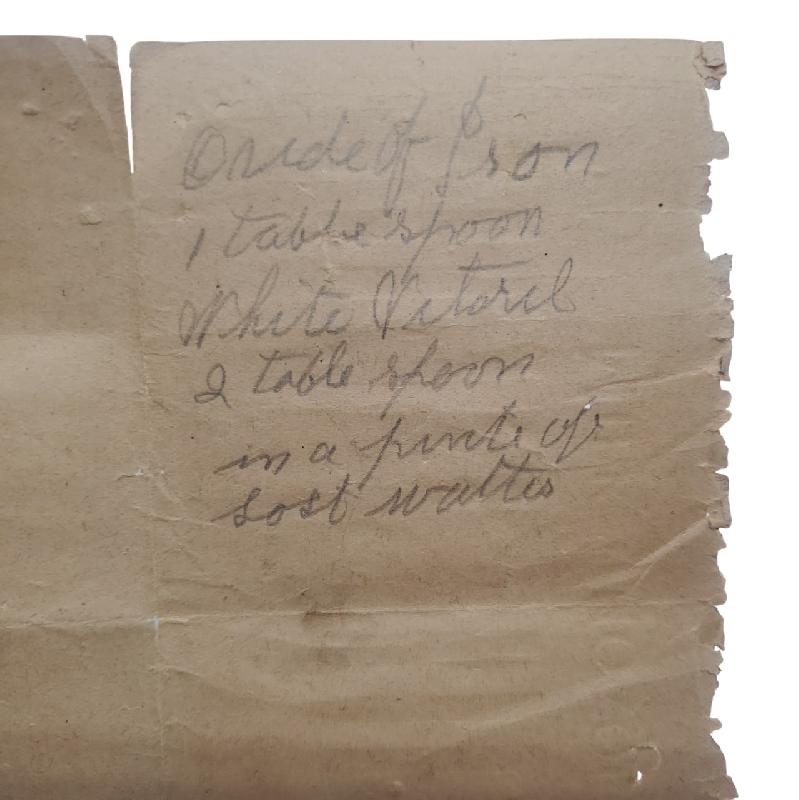 Oxide of Iron
1 table spoon
White Vitoril
2 table spoon
in a pinte of
soft watter